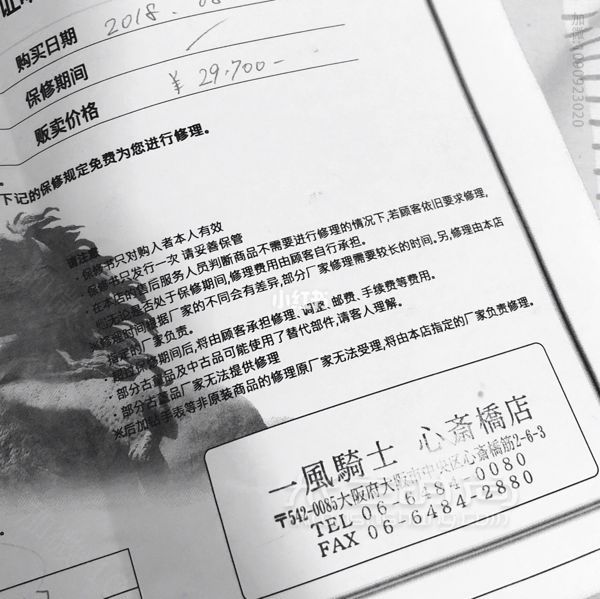 购买日期 2018.
保修期间
贩卖价格 ¥29.700-
下记的保修规定免费为您进行修理。
请注意
保修书只对购入者本人有效
保修书只发行一次 请妥善保管
·在本店的售后服务人员判断商品不需要进行修理的情况下,若顾客依旧要求修理,
无论是否处于保修期间,修理费用由顾客自行承担。
※修理时间根据厂家的不同会有差异,部分厂家修理需要较长的时间。另,修理由本店
指定的厂家负责。
保修期间后,将由顾客承担修理、调整、邮费、手续费等费用。
·部分古董品及中古品可能使用了替代部件,请客人理解。
·部分古董品厂家无法提供修理
※后加 手表等非原装商品的修理原厂家无法受理,将由本店指定的厂家负责修理。
一風騎士 心斎橋店
〒542-0085大阪府大阪市中央区心斎橋筋2-6-3
TEL 06-6484-0080
FAX 06-6484-2880
小红书